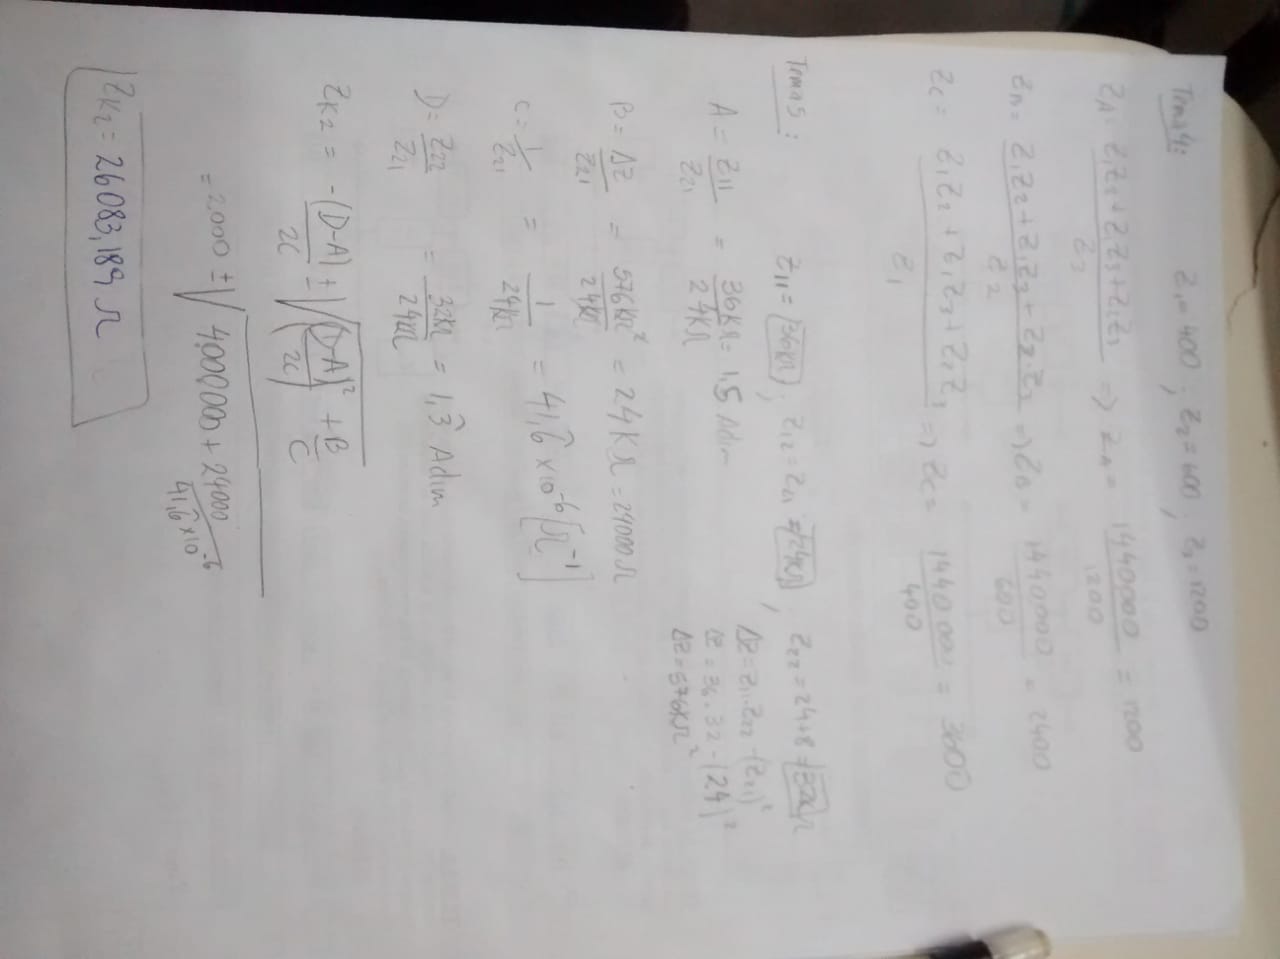 Tema 4: Z₁=400 ; Z₂=600 ; Z₃=1200
Z_A = Z₁Z₂+Z₂Z₃+Z₁Z₃ / Z₃ => Z_A = 1440000 / 1200 = 1200
Z_B = Z₁Z₂+Z₁Z₃+Z₂.Z₃ / Z₂ => Z_B = 1440000 / 600 = 2400
Z_C = Z₁Z₂+Z₁Z₃+Z₂Z₃ / Z₁ => Z_C = 1440000 / 400 = 3600
Tema 5: Z₁₁ = 36KΩ ; Z₁₂ = Z₂₁ = 24KΩ , Z₂₂ = 24+8 = 32KΩ
ΔZ = Z₁₁.Z₂₂-(Z₂₁)²
ΔZ = 36.32-(24)²
ΔZ = 576KΩ²
A = Z₁₁ / Z₂₁ = 36KΩ / 24KΩ = 1,5 Adim
B = ΔZ / Z₂₁ = 576KΩ² / 24KΩ = 24KΩ = 24000Ω
C = 1 / Z₂₁ = 1 / 24KΩ = 41,6̂ x10⁻⁶ [Ω⁻¹]
D = Z₂₂ / Z₂₁ = 32KΩ / 24KΩ = 1,3̂ Adim
Z_K₂ = -(D-A) / 2C ± √((D-A) / 2C)² + B / C
= 2000 ± √4000000 + 24000 / 41,6̂ x10⁻⁶
Z_K₂ = 26083,189 Ω